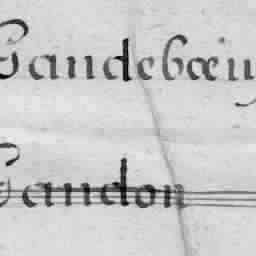 Gandebœuf
Gandon